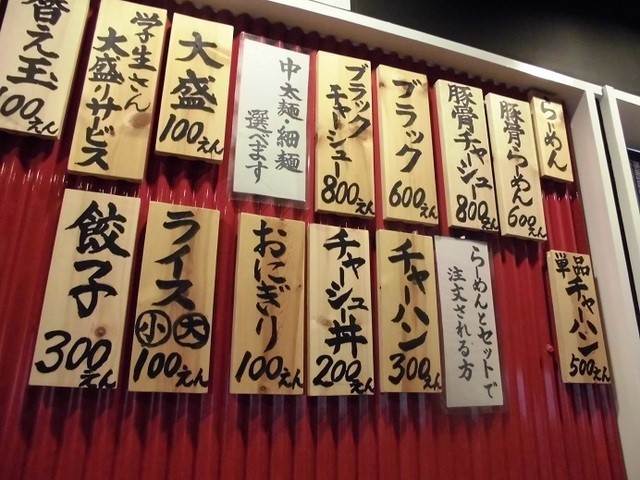 らーめん
豚骨らーめん
600えん
豚骨チャーシュー
800えん
ブラック
600えん
ブラック
チャーシュー
800えん
中太麺・細麺
選べます
大盛
100えん
学生さん
大盛りサービス
替え玉
100えん
単品
チャーハン
500えん
らーめんとセットで
注文される方
チャーハン
300えん
チャーシュー丼
200えん
おにぎり
100えん
ライス
大
小
100えん
餃子
300えん